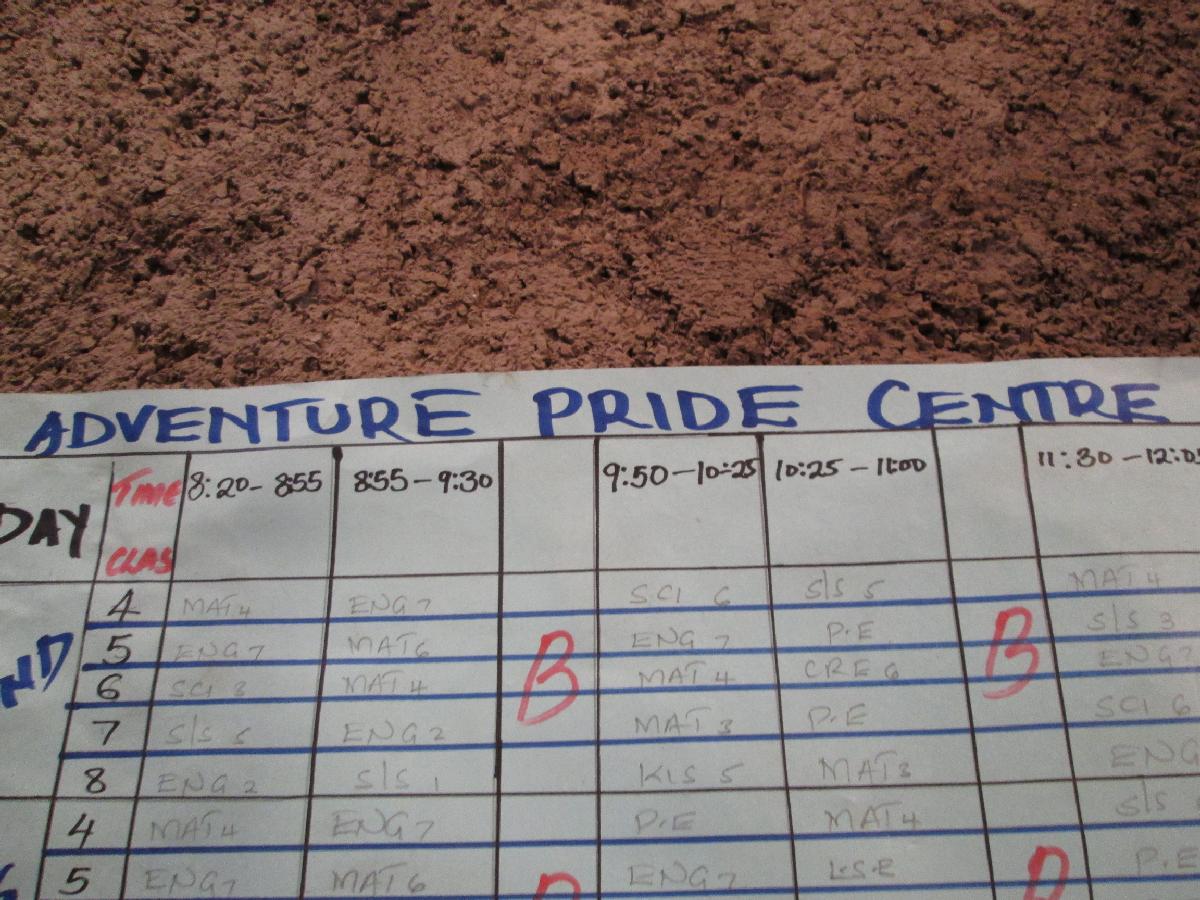 ADVENTURE PRIDE CENTRE
DAY TIME CLAS 8:20-8:55 8:55-9:30 9:50-10:25 10:25-11:00 11:30-12:05
4 MAT 4 ENG 7 SCI 6 S/S 5 MAT 4
5 ENG 7 MAT 6 B ENG 7 P.E B S/S 3
6 SCI 3 MAT 4 MAT 4 CRE 6 ENG 2
7 S/S 5 ENG 2 MAT 3 P.E SCI 6
8 ENG 2 S/S 1 KIS 5 MAT 3 ENG
4 MAT 4 ENG 7 P.E MAT 4 S/S
5 ENG 7 MAT 6 ENG 7 L.S.E P.E